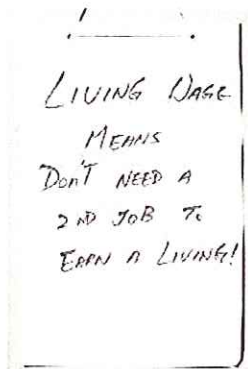 LIVING WAGE
MEANS
DON'T NEED A
2ND JOB TO
EARN A LIVING!